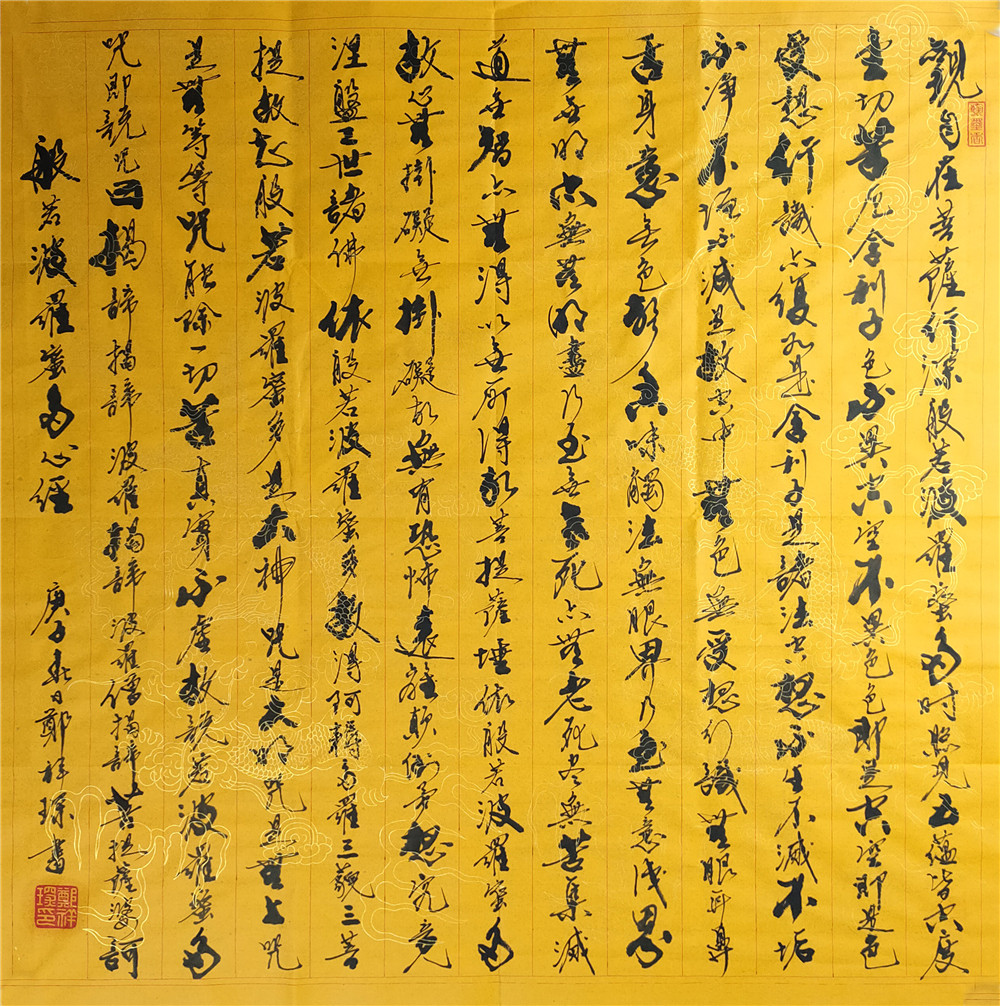 觀自在菩薩行深般若波羅蜜多時照見五蘊皆空度
壹切苦厄舍利子色不異空空不異色色即是空空即是色
受想行識亦復如是舍利子是諸法空想不生不滅不垢
不净不增不減是故空中無色無受想行識無眼耳鼻
舌身意無色聲香味觸法無眼界乃至無意識界
無無明亦無無明盡乃至無老死亦無老死盡無苦集滅
道無智亦無得以無所得故菩提薩埵依般若波羅蜜多
故心無掛礙無掛礙故無有恐怖遠離顛倒夢想究竟
涅盤三世諸佛依般若波羅蜜多故得阿耨多羅三藐三菩
提故知般若波羅蜜多是大神咒是大明咒是無上咒
是無等等咒能除一切苦真實不虛故說若波羅蜜多
咒即說咒曰揭諦揭諦波羅揭諦波羅僧揭諦菩提薩婆訶
般若波羅蜜多心經
庚子春日鄭祥琛書
鄭祥琛印